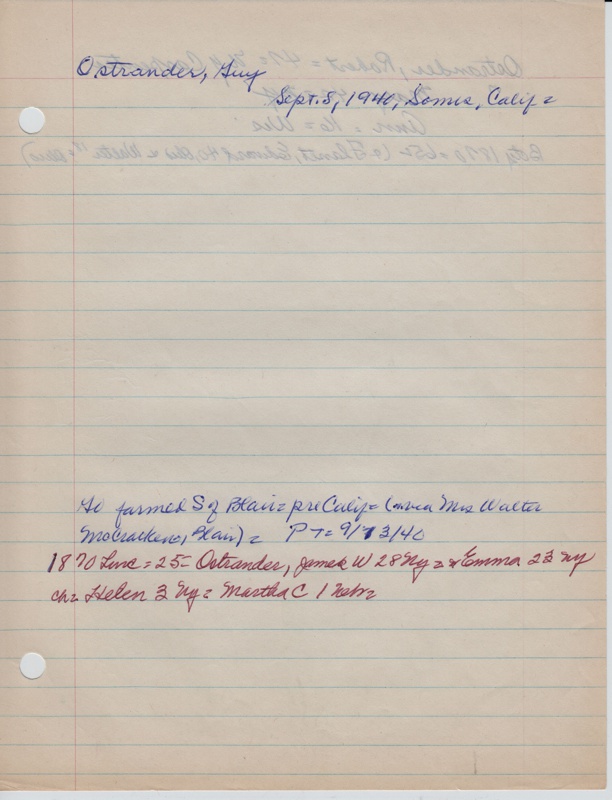 Ostrander, Guy
Sept. 5, 1940, Somis, Calif =
farmed S of Blair = pre Calif = Mrs Walter
McCracken, Blair) = P T = 9/ 3/40
1870 = 25 = Ostrander, James W 28 Ny = & Emma 23 Ny
ch = Helen 3 Ny = Martha C 1 Nebr =